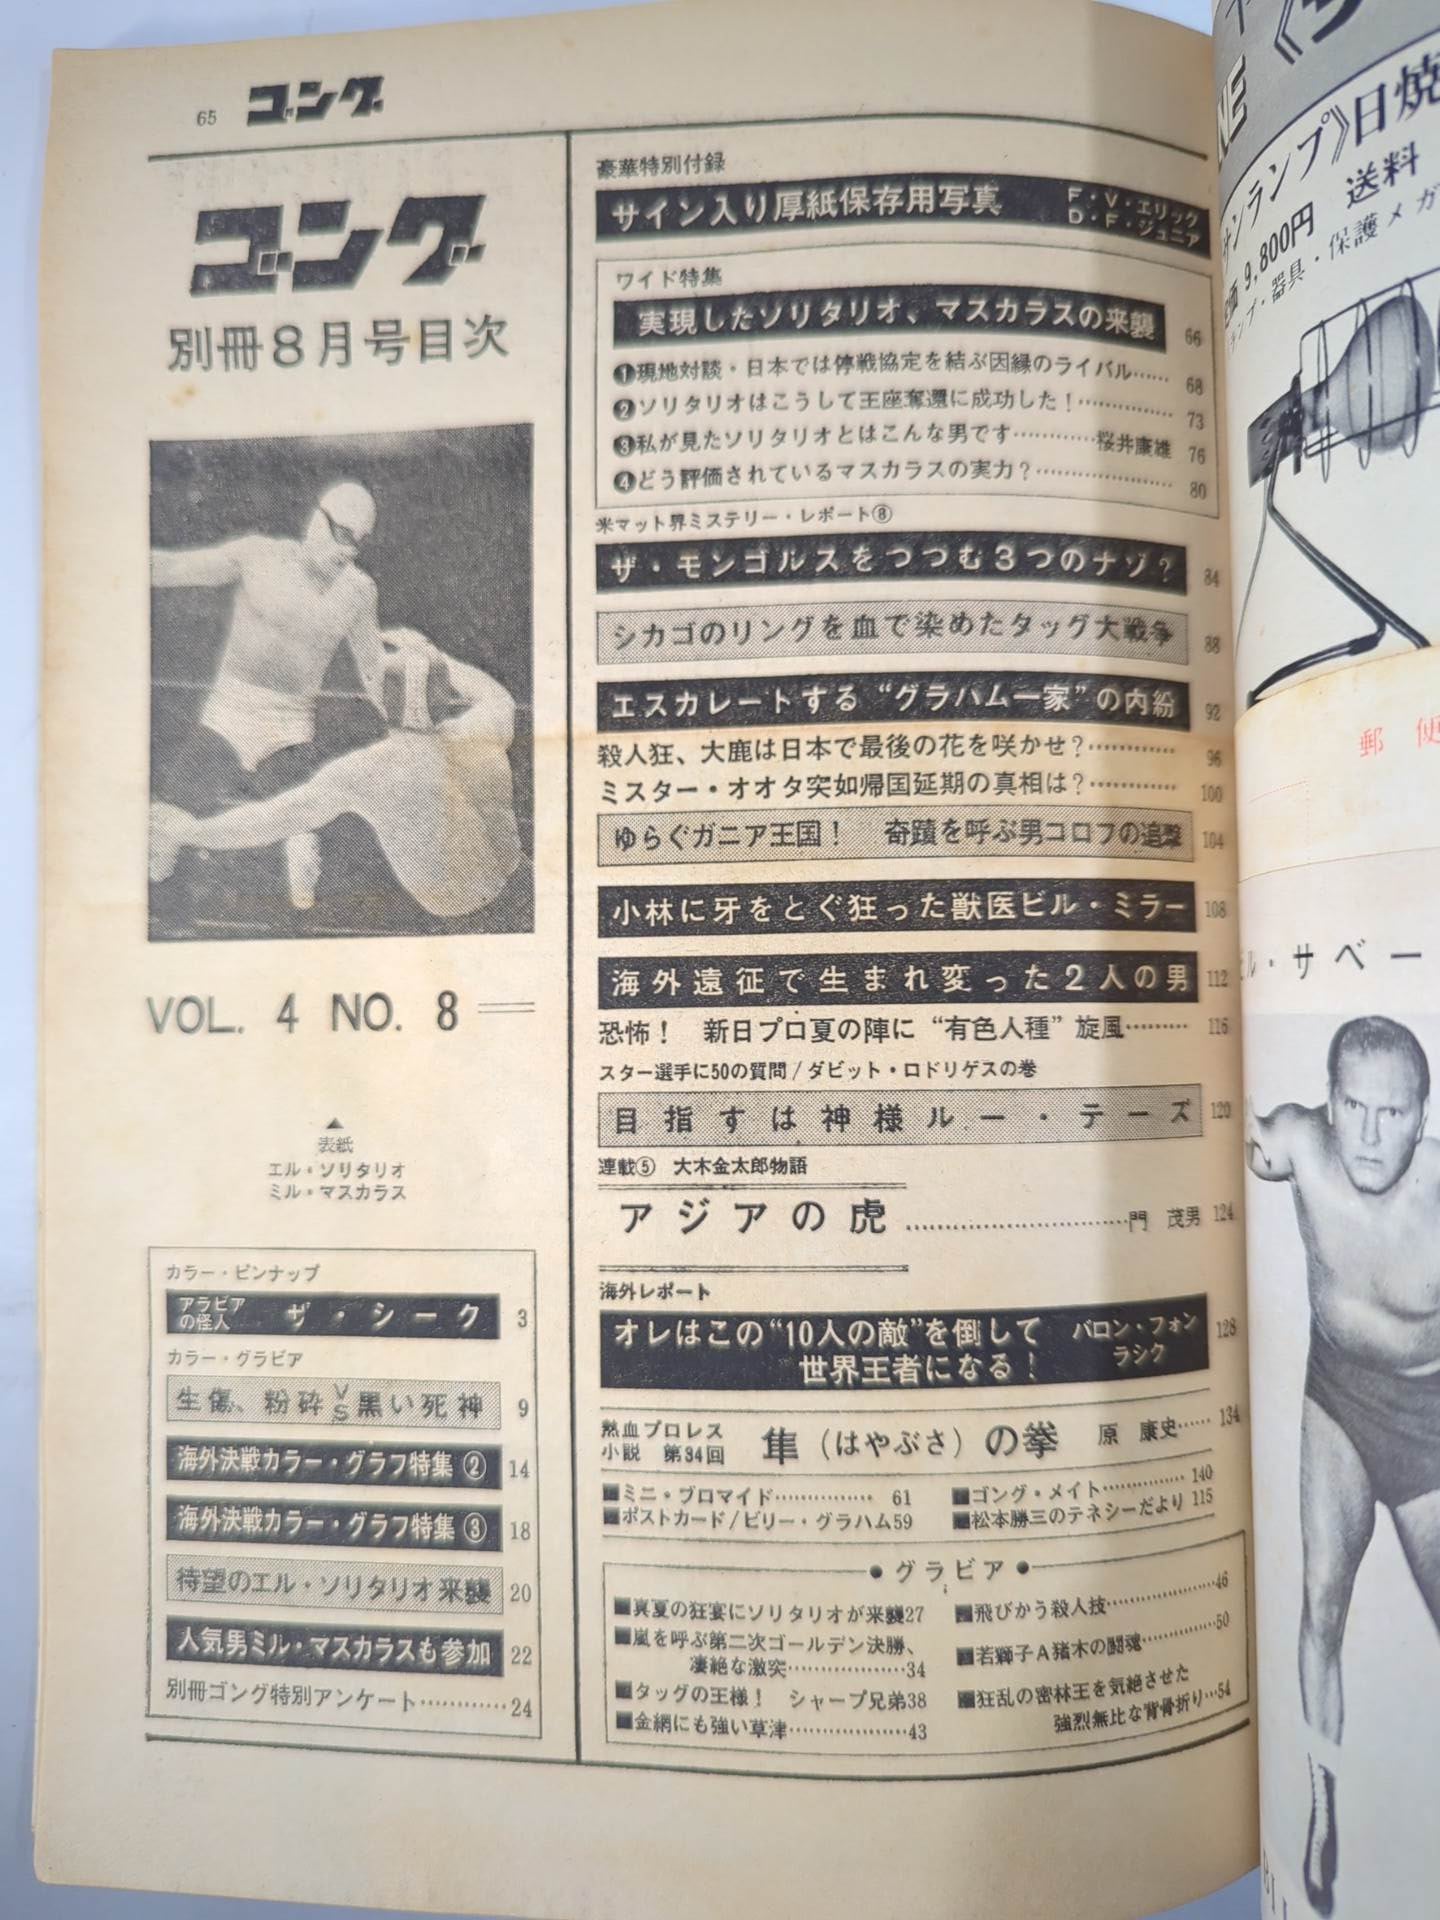 65 ゴング
ゴング
別冊8月号目次
VOL. 4 NO. 8
▲
表紙
エル・ソリタリオ
ミル・マスカラス
カラー・ピンナップ
アラビアの怪人 ザ・シーク 3
カラー・グラビア
生傷、粉砕VS黒い死神 9
海外決戦カラー・グラフ特集② 14
海外決戦カラー・グラフ特集③ 18
待望のエル・ソリタリオ来襲 20
人気男ミル・マスカラスも参加 22
別冊ゴング特別アンケート………… 24
豪華特別付録
サイン入り厚紙保存用写真 F・V・エリック D・F・ジュニア
ワイド特集
実現したソリタリオ、マスカラスの来襲 66
❶現地対談・日本では停戦協定を結ぶ因縁のライバル…… 68
❷ソリタリオはこうして王座奪還に成功した！…………… 73
❸私が見たソリタリオとはこんな男です…………桜井康雄 76
❹どう評価されているマスカラスの実力？……………… 80
米マット界ミステリー・レポート⑧
ザ・モンゴルスをつつむ3つのナゾ？ 84
シカゴのリングを血で染めたタッグ大戦争 88
エスカレートする“グラハム一家”の内紛 92
殺人狂、大鹿は日本で最後の花を咲かせ？………… 96
ミスター・オオタ突如帰国延期の真相は？………… 100
ゆらぐガニア王国！ 奇蹟を呼ぶ男コロフの追撃 104
小林に牙をとぐ狂った獣医ビル・ミラー 108
海外遠征で生まれ変った2人の男 112
恐怖！ 新日プロ夏の陣に“有色人種”旋風……… 116
スター選手に50の質問/ダビット・ロドリゲスの巻
目指すは神様ルー・テーズ 120
連載⑤ 大木金太郎物語
アジアの虎……………………………門 茂男 124
海外レポート
オレはこの“10人の敵”を倒して バロン・フォン 128
世界王者になる！ ラシク
熱血プロレス小説 第34回 隼（はやぶさ）の拳 原 康史…… 134
■ミニ・ブロマイド…………… 61
■ポストカード/ビリー・グラハム59
■ゴング・メイト…………… 140
■松本勝三のテネシーだより 115
●グラビア●
■真夏の狂宴にソリタリオが来襲27
■嵐を呼ぶ第二次ゴールデン決勝、
凄絶な激突………………34
■タッグの王様！ シャープ兄弟38
■金網にも強い草津………………43
■飛びかう殺人技………………46
■若獅子A猪木の闘魂…………50
■狂乱の密林王を気絶させた
強烈無比な背骨折り…54
サンランプ》日焼
9,800円 送料
器具・保護メガ
郵便
ル・サベー